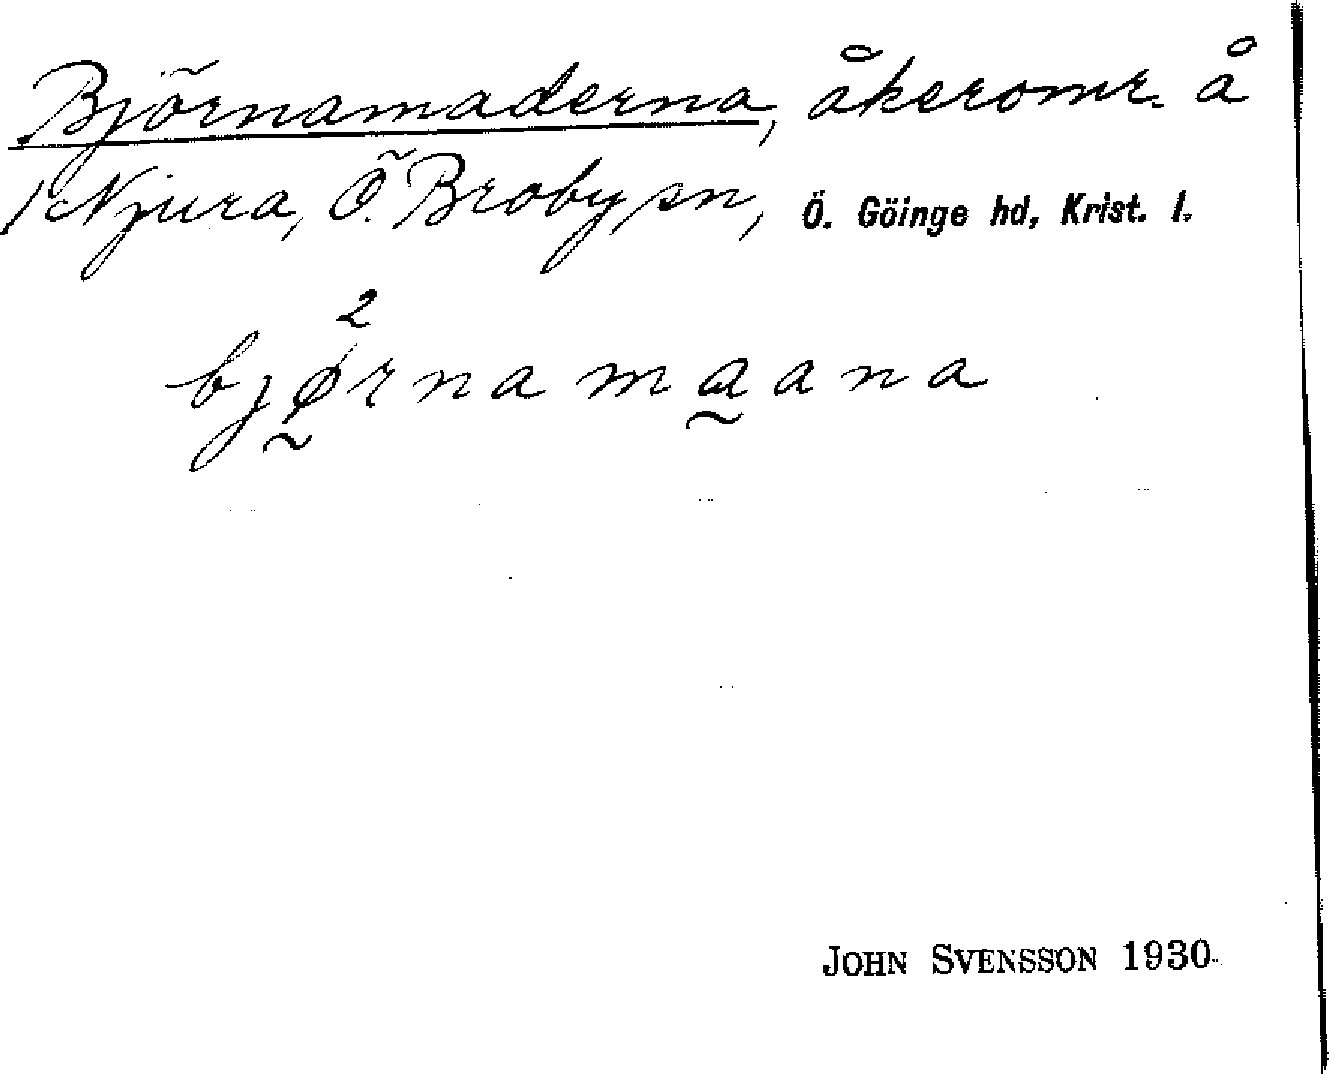 Björnamaderna, åkeromr. å
1 Njura, Ö. Broby sn, Ö. Göinge hd, Krist. l.
2
bjørnamaana
JOHN SVENSSON 1930